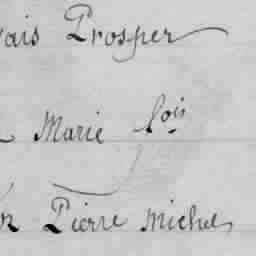 vais Prosper
Marie fois
Pierre Michel